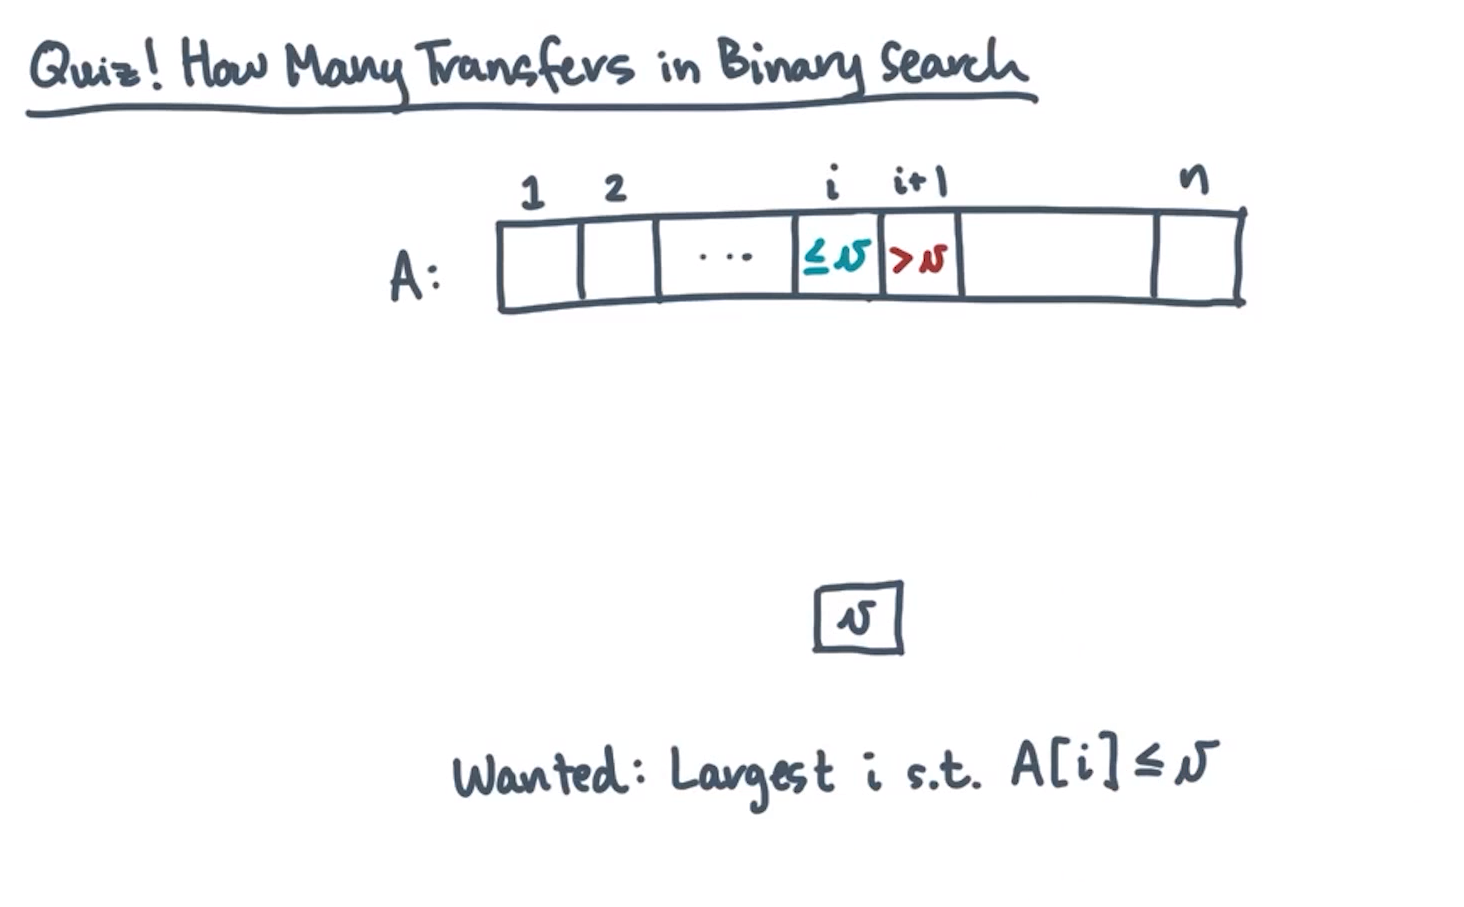 Quiz! How Many Transfers in Binary Search
1 2 i i+1 n
A: ... ≤v >v
v
Wanted: Largest i s.t. A[i] ≤ v